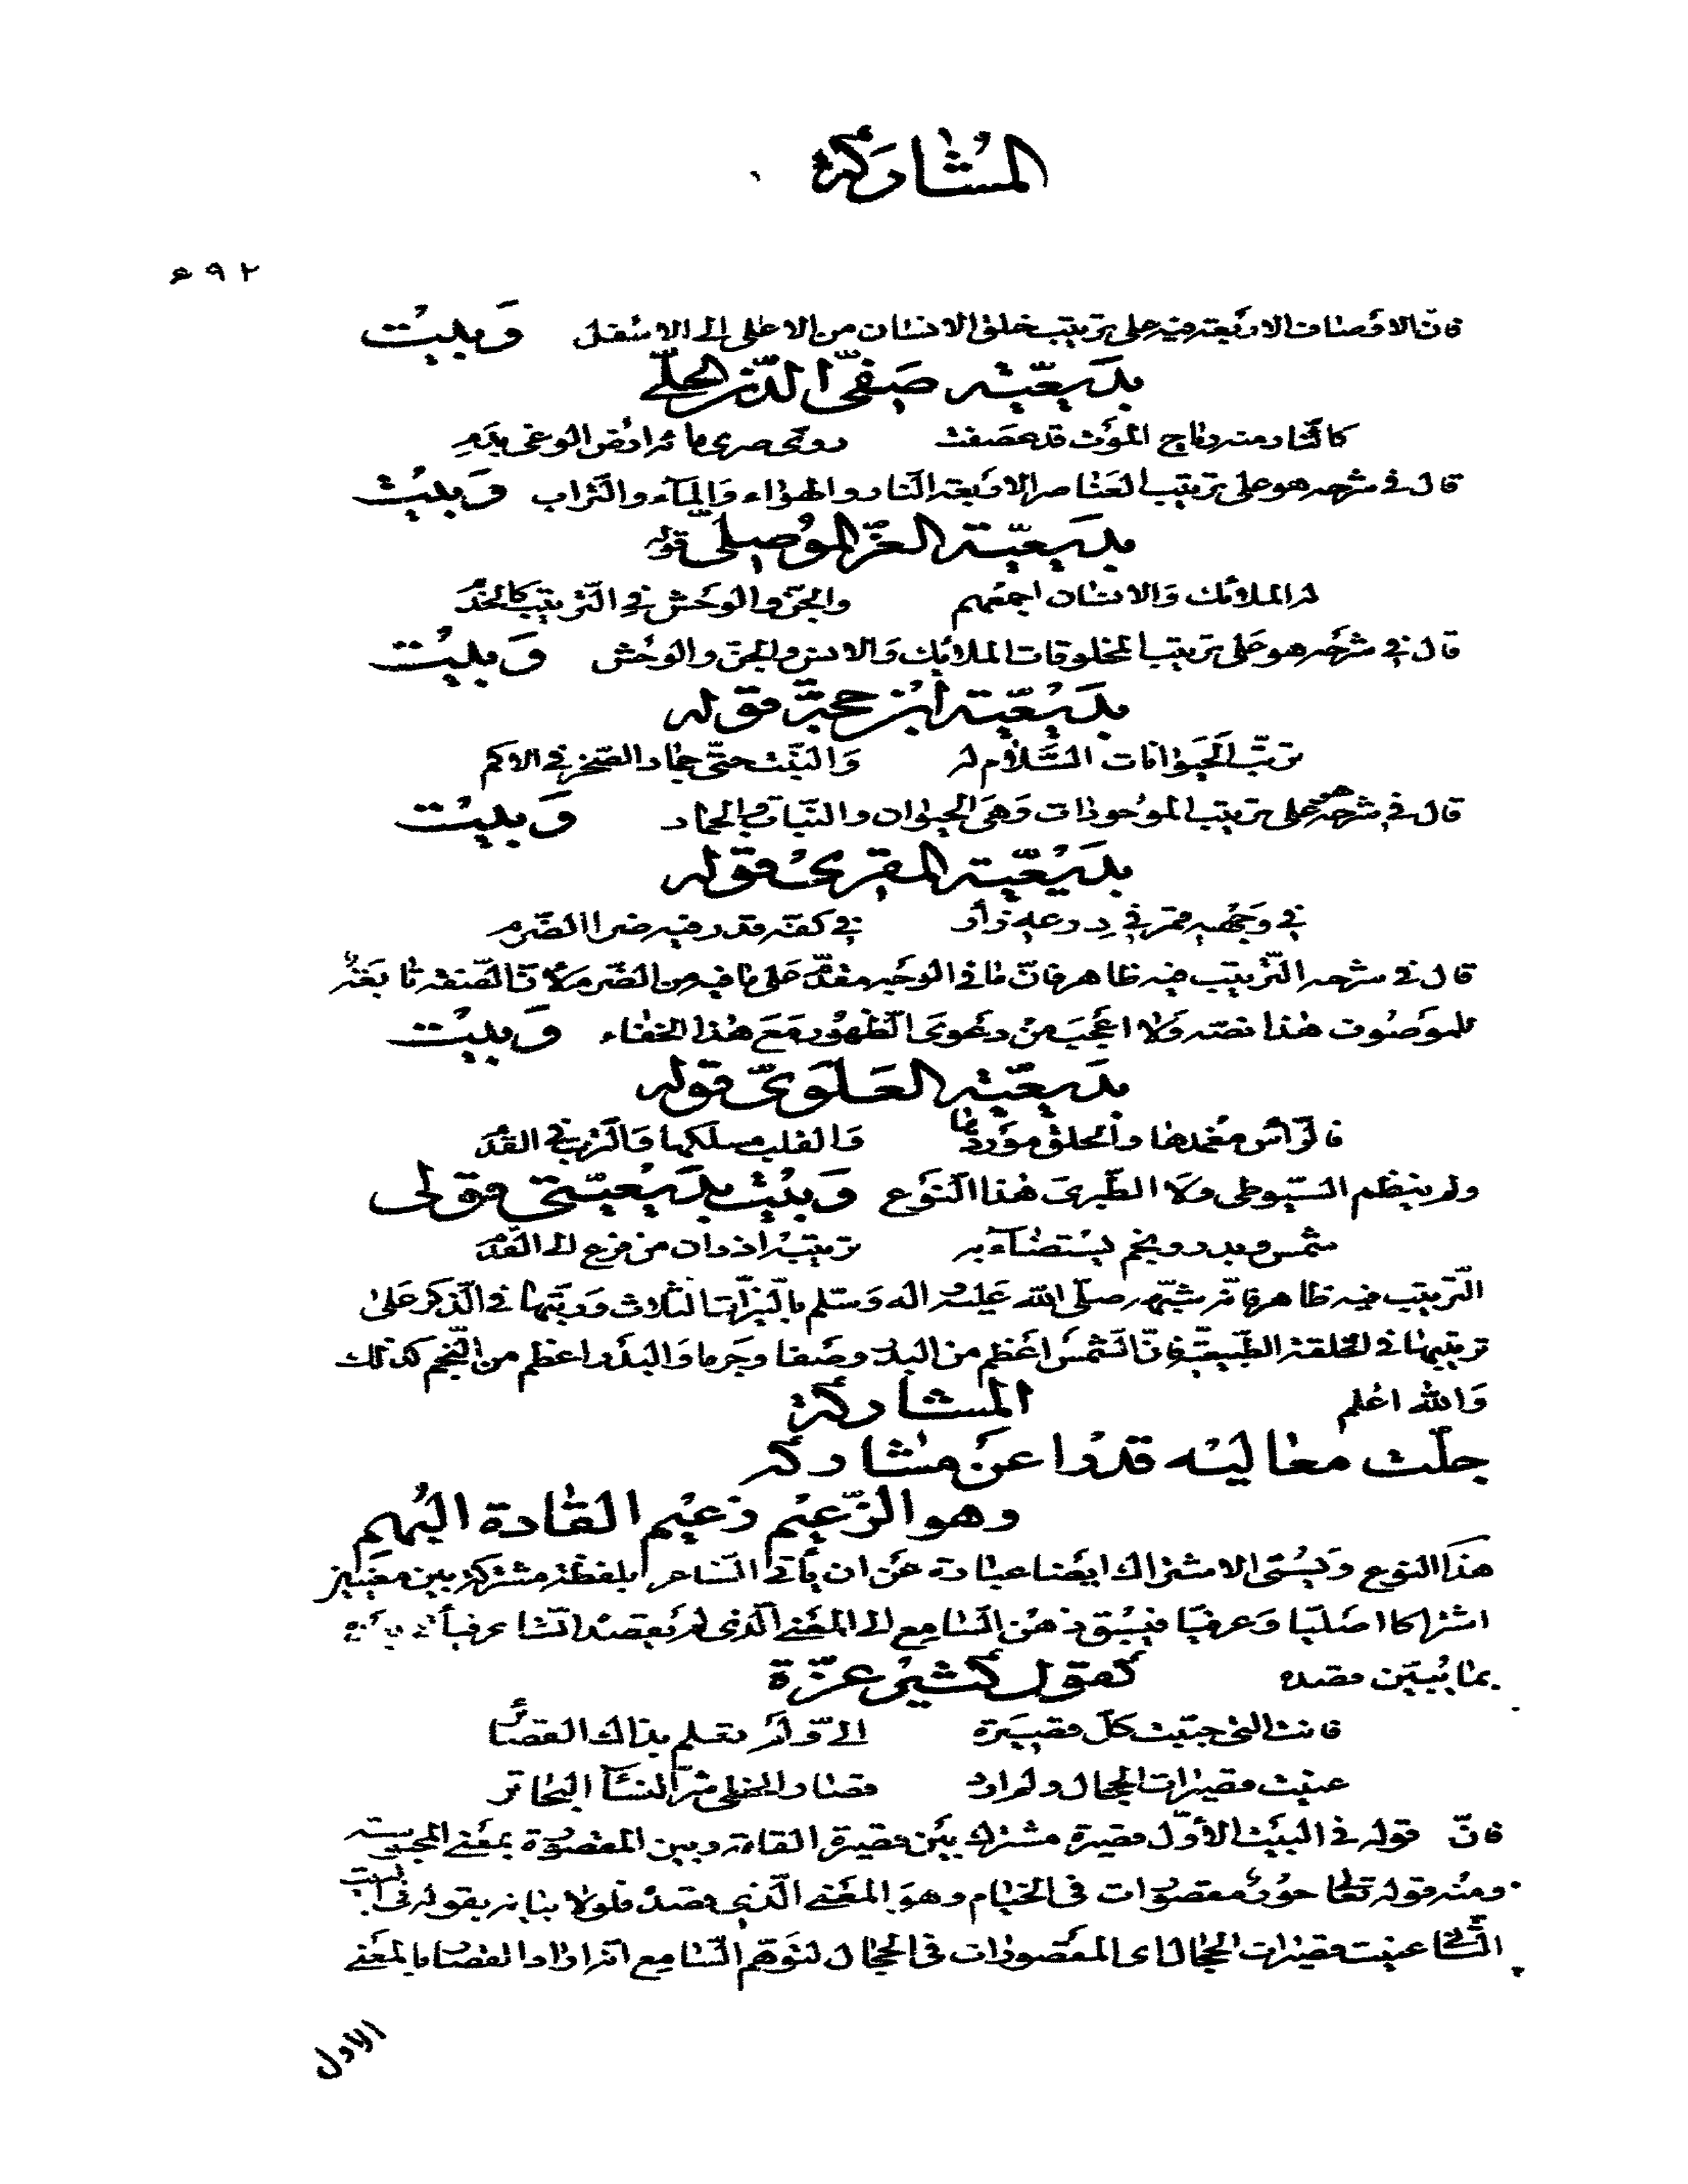 المشاركة
٦٩٢
فان الاوصاف الاربعة فيه على ترتيب خلق الانسان من الاعلى الى الاسفل وبيت
بديعية صفي الدين الحلي
كالنار منه رياح الموت قد عصفت روى صرى ماءه ارض الوغى بدم
قال في شرحه هو على ترتيب العناصر الاربعة النار والهواء والماء والتراب وبيت
بديعية العز الموصلي قوله
له الملائك والانسان اجمعهم والجن والوحش في الترتيب كالخدم
قال في شرحه هو على ترتيب المخلوقات الملائك والانس والجن والوحش وبيت
بديعية ابن حجة قوله
ترتب الحيوانات السلام له والنبت حتى جماد الصخر في الاكم
قال في شرحه هو على ترتيب الموجودات وهي الحيوان والنبات والجماد وبيت
بديعية المقري قوله
في وجهه قمر في درعه زأر في كفه قدر فيه ضرا الضرم
قال في شرحه الترتيب فيه ظاهر فان ما في الوجه مقدم على ما فيه من الضرم لان الصفة تابعة
للموصوف هذا نصه ولا اعجب من دعوى الظهور مع هذا الخفاء وبيت
بديعية العلوي قوله
فالرأس مغمدها والحلق موردها والقلب مسلكها والترب في القدم
ولم ينظم السيوطي ولا الطبري هذا النوع وبيت بديعيتي قولي
شمس وبدر ونجم يستضاء به ترتيبه ازدان من فرع الى القدم
الترتيب فيه ظاهر فانه شبهه صلى الله عليه واله وسلم بالنيرات الثلاث ورتبها في الذكر على
ترتيبها في الخلقة الطبيعية فان الشمس اعظم من البدر وصفا وجرما والبدر اعظم من النجم كذلك
والله اعلم المشاركة
جلت معاليه قدرا عن مشاركة
وهو الزعيم زعيم القادة البهم
هذا النوع ويسمى الاشتراك ايضا عبارة عن ان يأتي الشاعر بلفظة مشتركة بين معنيين
اشتراكا اصليا وعرفيا فيسبق ذهن السامع الى المعنى الذي لم يقصده الشاعر فيأتي بعده
بما يبين قصده كقول كثير عزة
فانت التي حببت كل قصيرة الي ولم تعلم بذاك القصائر
عنيت قصيرات الحجال ولم ارد قصار الخطى شر النساء البحاتر
فان قوله في البيت الاول قصيرة مشترك بين قصيرة القامة وبين المقصورة بمعنى المحبوسة
ومنه قوله تعالى حور مقصورات في الخيام وهو المعنى الذي قصده فلولا بيانه بقوله في البيت
الثاني عنيت قصيرات الحجال اي المقصورات في الحجال لتوهم السامع انه اراد القصار بالمعنى
الاول